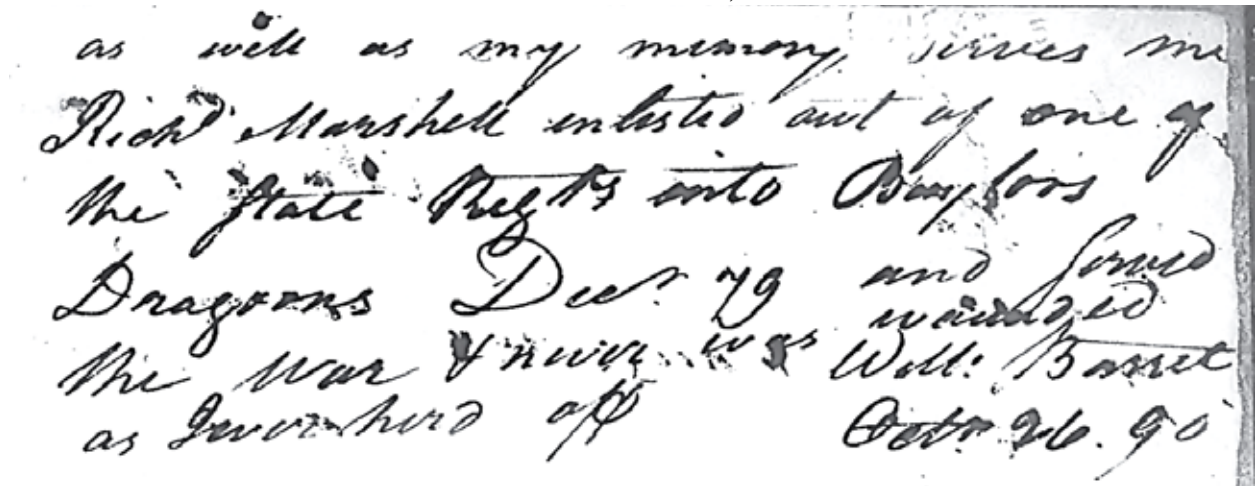 as well as my memory serves me
Richd Marshell enlisted out of one of
the State Regts into Baylors
Dragoons Decr. 79 and served
the War & never was wounded
as I ever herd off Will: Barret
Octr. 26. 90